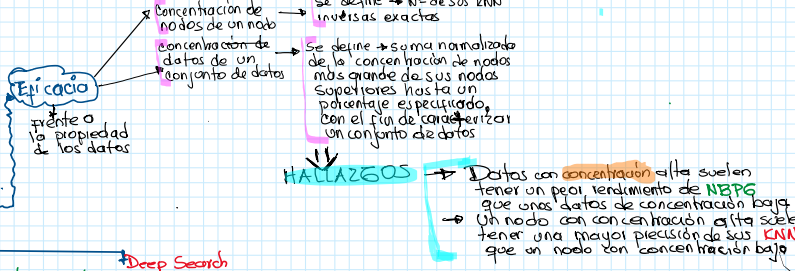 Concentración de
nodos de un nodo
Se define → Nº de sus KNN
inversas exactas
concentración de
datos de un
conjunto de datos
Se define → suma normalizada
de la concentración de nodos
más grande de sus nodos
superiores hasta un
porcentaje especificado,
con el fin de caracterizar
un conjunto de datos
Eficacia
Frente a
la propiedad
de los datos
HALLAZGOS
Datos con concentración alta suelen
tener un peor rendimiento de NBPG
que unos datos de concentración baja
Un nodo con concentración alta suele
tener una mayor precisión de sus KNN
que un nodo con concentración baja
Deep Search